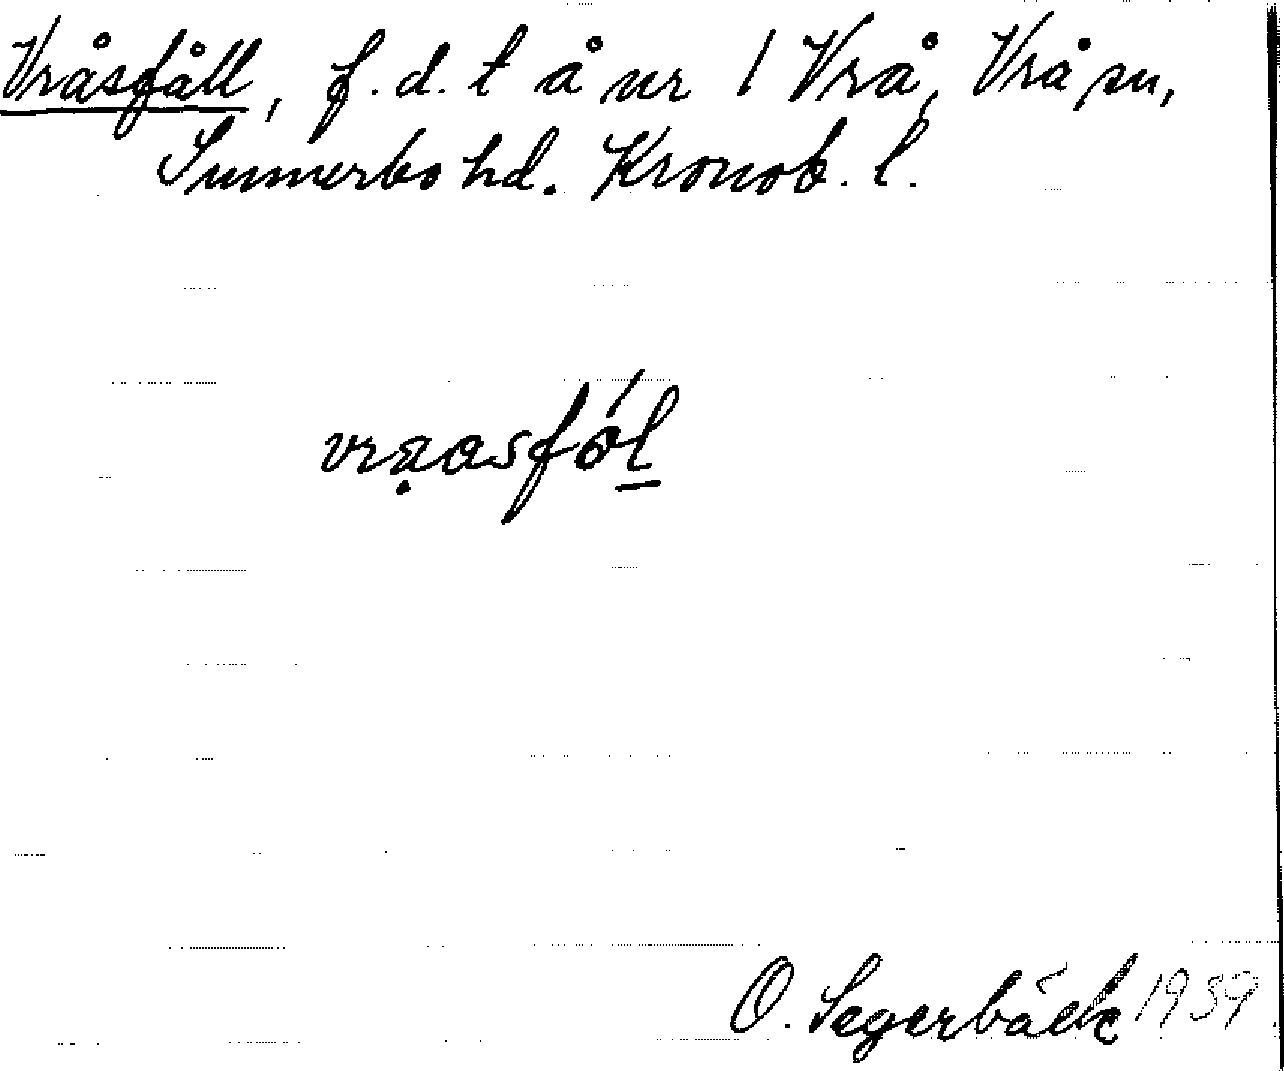 Vråsfåll, f.d. t å nr 1 Vrå, Vrå sn,
Sunnerbo hd. Kronob. l.
vrạasfól
O. Segerbäck 1939